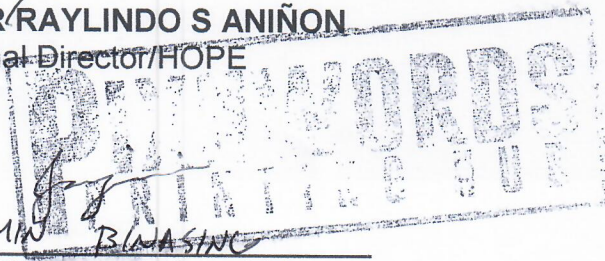 R RAYLINDO S ANIÑON
al Director/HOPE
PIXELWORDS
PRINTING HUB
MIN BINASING